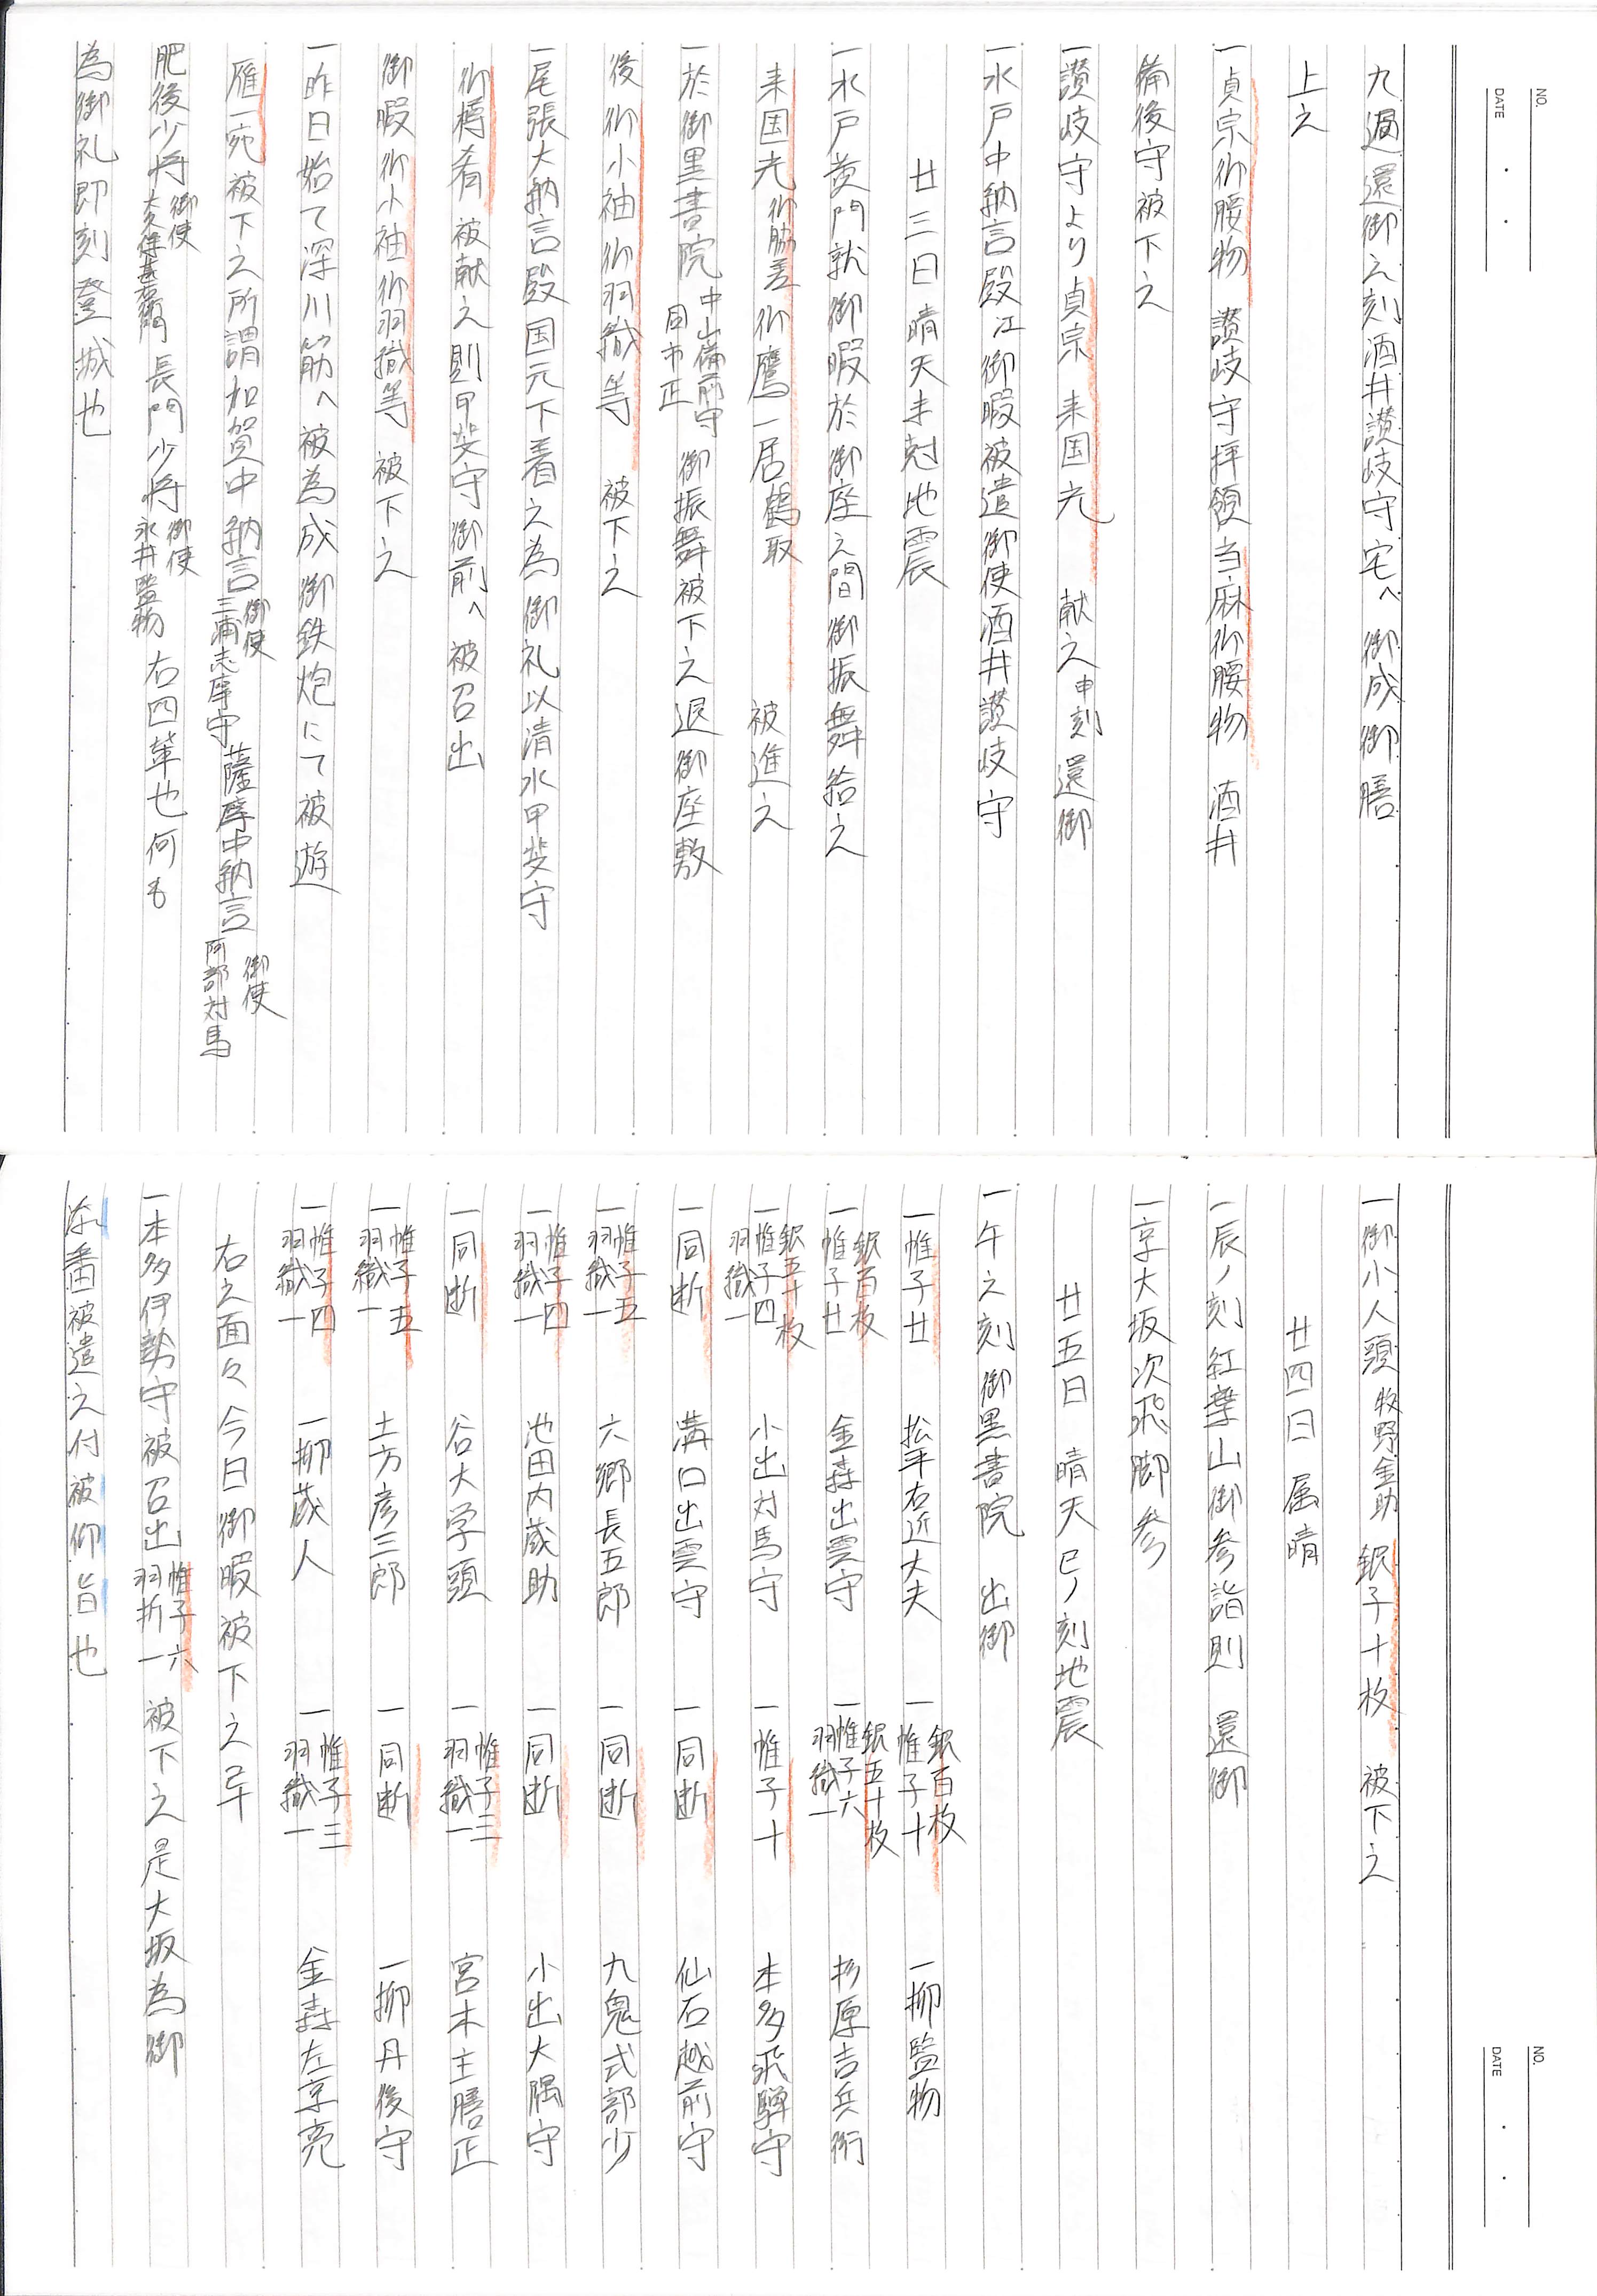 NO.
DATE
九過還御之刻酒井讃岐守宅へ 御成御膳
上之
一貞宗御腰物 讃岐守拝領当麻御腰物 酒井
備後守被下之
一讃岐守より貞宗 来国光 献之申刻還御
一水戸中納言殿江御暇被遣御使酒井讃岐守
廿三日晴天未尅地震
一水戸黄門就御暇於御座之間御振舞給之
来国光御脇差御鷹一居鶴取 被進之
一於御黒書院中山備前守同市正 御振舞被下之退御座敷
後御小袖御羽織等 被下之
一尾張大納言殿国元下着之為御礼以清水甲斐守
御樽肴被献之則甲斐守御前へ被召出
御暇御小袖御羽織等 被下之
一昨日始て深川筋へ被為成御鉄炮にて被遊
雁一宛被下之所謂加賀中納言御使三浦志摩守薩摩中納言御使阿部対馬
肥後少将御使大久保甚右衛門長門少将御使永井監物右四輩也何も
為御礼即刻登城也
NO.
DATE
一御小人頭牧野金助 銀子十枚 被下之
廿四日 属晴
一辰ノ刻紅葉山御参詣則 還御
一京大坂次飛脚参
廿五日 晴天巳ノ刻地震
一午之刻御黒書院 出御
一帷子廿 松平右近大夫 一銀百枚帷子十 一柳監物
一銀百枚帷子廿 金森出雲守 一銀五十枚帷子六羽織一 杉原吉兵衛
一銀五十枚帷子四羽織一 小出対馬守 一帷子十 本多飛騨守
一同断 溝口出雲守 一同断 仙石越前守
一帷子五羽織一 六郷長五郎 一同断 九鬼式部少
一帷子四羽織一 池田内蔵助 一同断 小出大隅守
一同断 谷大学頭 一帷子三羽織一 宮木主膳正
一帷子五羽織一 土方彦三郎 一同断 一柳丹後守
一帷子四羽織一 一柳蔵人 一帷子三羽織一 金森左京亮
右之面々今日御暇被下之
一本多伊勢守被召出帷子六羽折一 被下之是大坂為御
番被遣之付被仰旨也